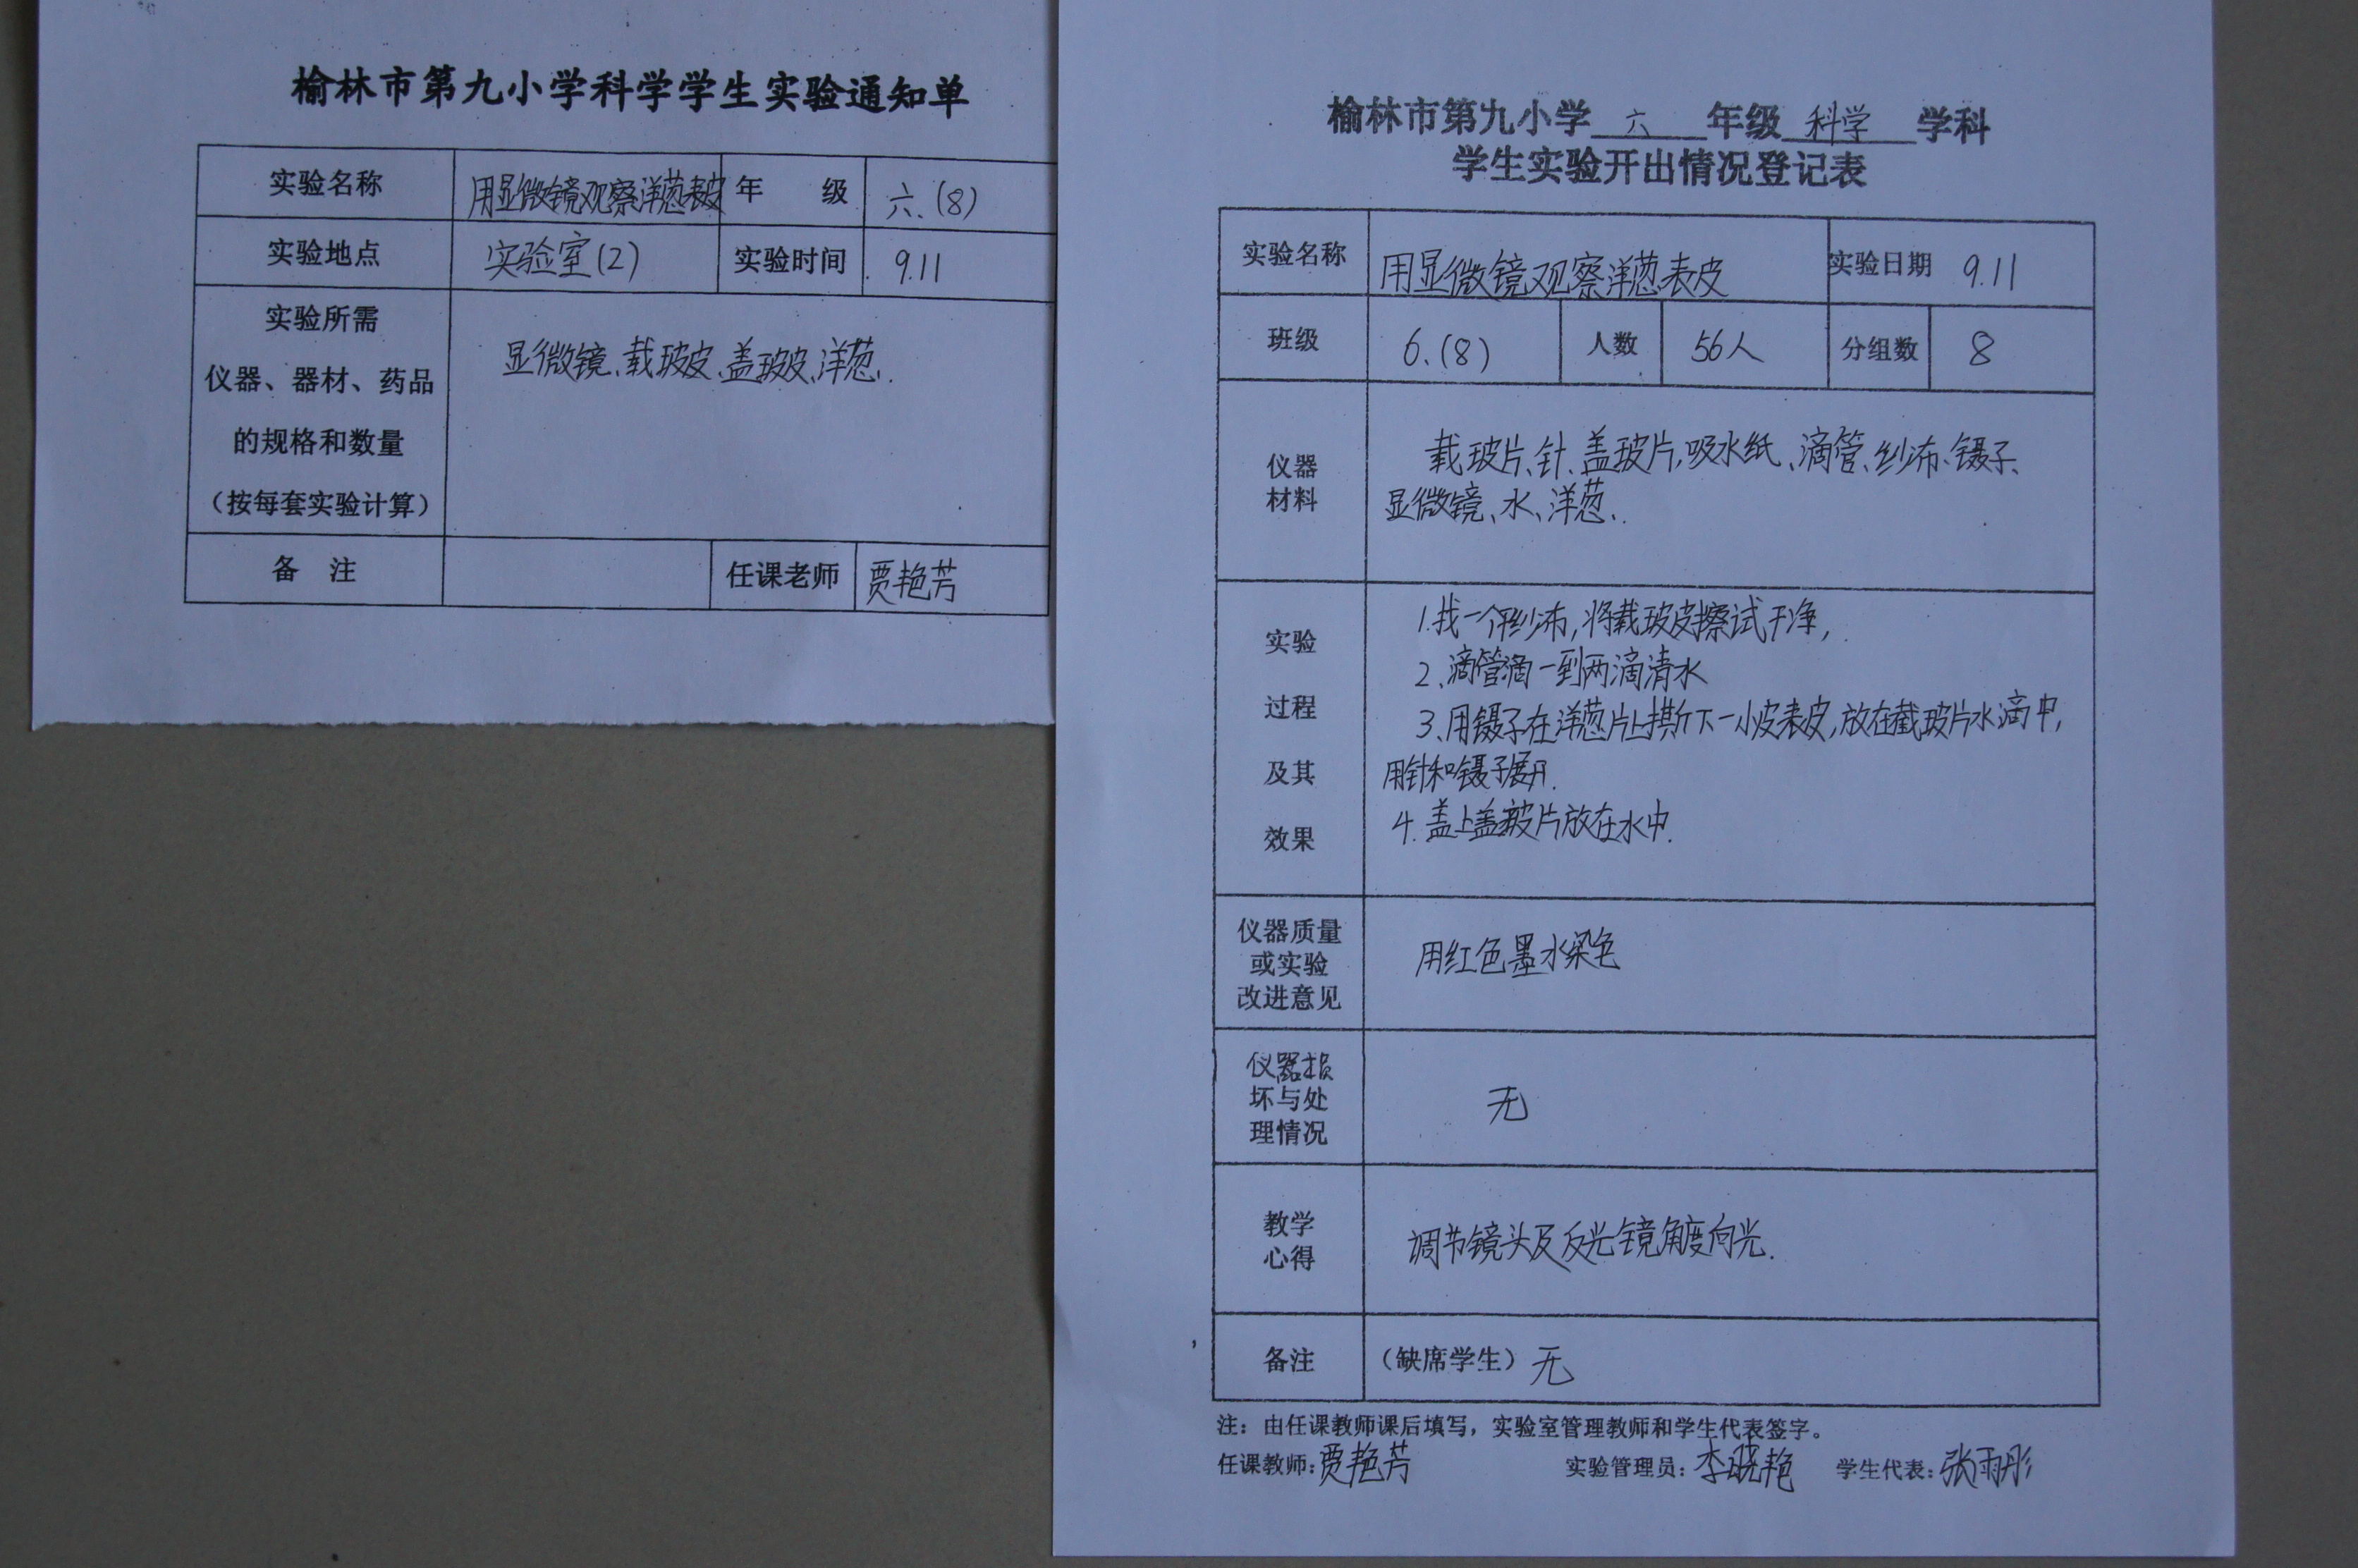 榆林市第九小学科学学生实验通知单
实验名称 用显微镜观察洋葱表皮 年 级 六.(8)
实验地点 实验室(2) 实验时间 9.11
实验所需
仪器、器材、药品
的规格和数量
(按每套实验计算)
显微镜、载玻皮、盖玻皮、洋葱.
备 注 任课老师 贾艳芳
榆林市第九小学 六 年级 科学 学科
学生实验开出情况登记表
实验名称 用显微镜观察洋葱表皮 实验日期 9.11
班级 6.(8) 人数 56人 分组数 8
仪器
材料
载玻片、针、盖玻片,吸水纸、滴管、纱布、镊子、
显微镜、水、洋葱.
实验
过程
及其
效果
1.找一个纱布,将载玻皮擦试干净,
2、滴管滴一到两滴清水
3、用镊子在洋葱片上撕下一小皮表皮,放在截玻片水滴中,
用针和镊子展开.
4.盖上盖玻片放在水中.
仪器质量
或实验
改进意见
用红色墨水染色
仪器损
坏与处
理情况
无
教学
心得
调节镜头及反光镜角度向光.
备注 (缺席学生) 无
注:由任课教师课后填写,实验室管理教师和学生代表签字。
任课教师:贾艳芳 实验管理员:李晓艳 学生代表:张雨彤